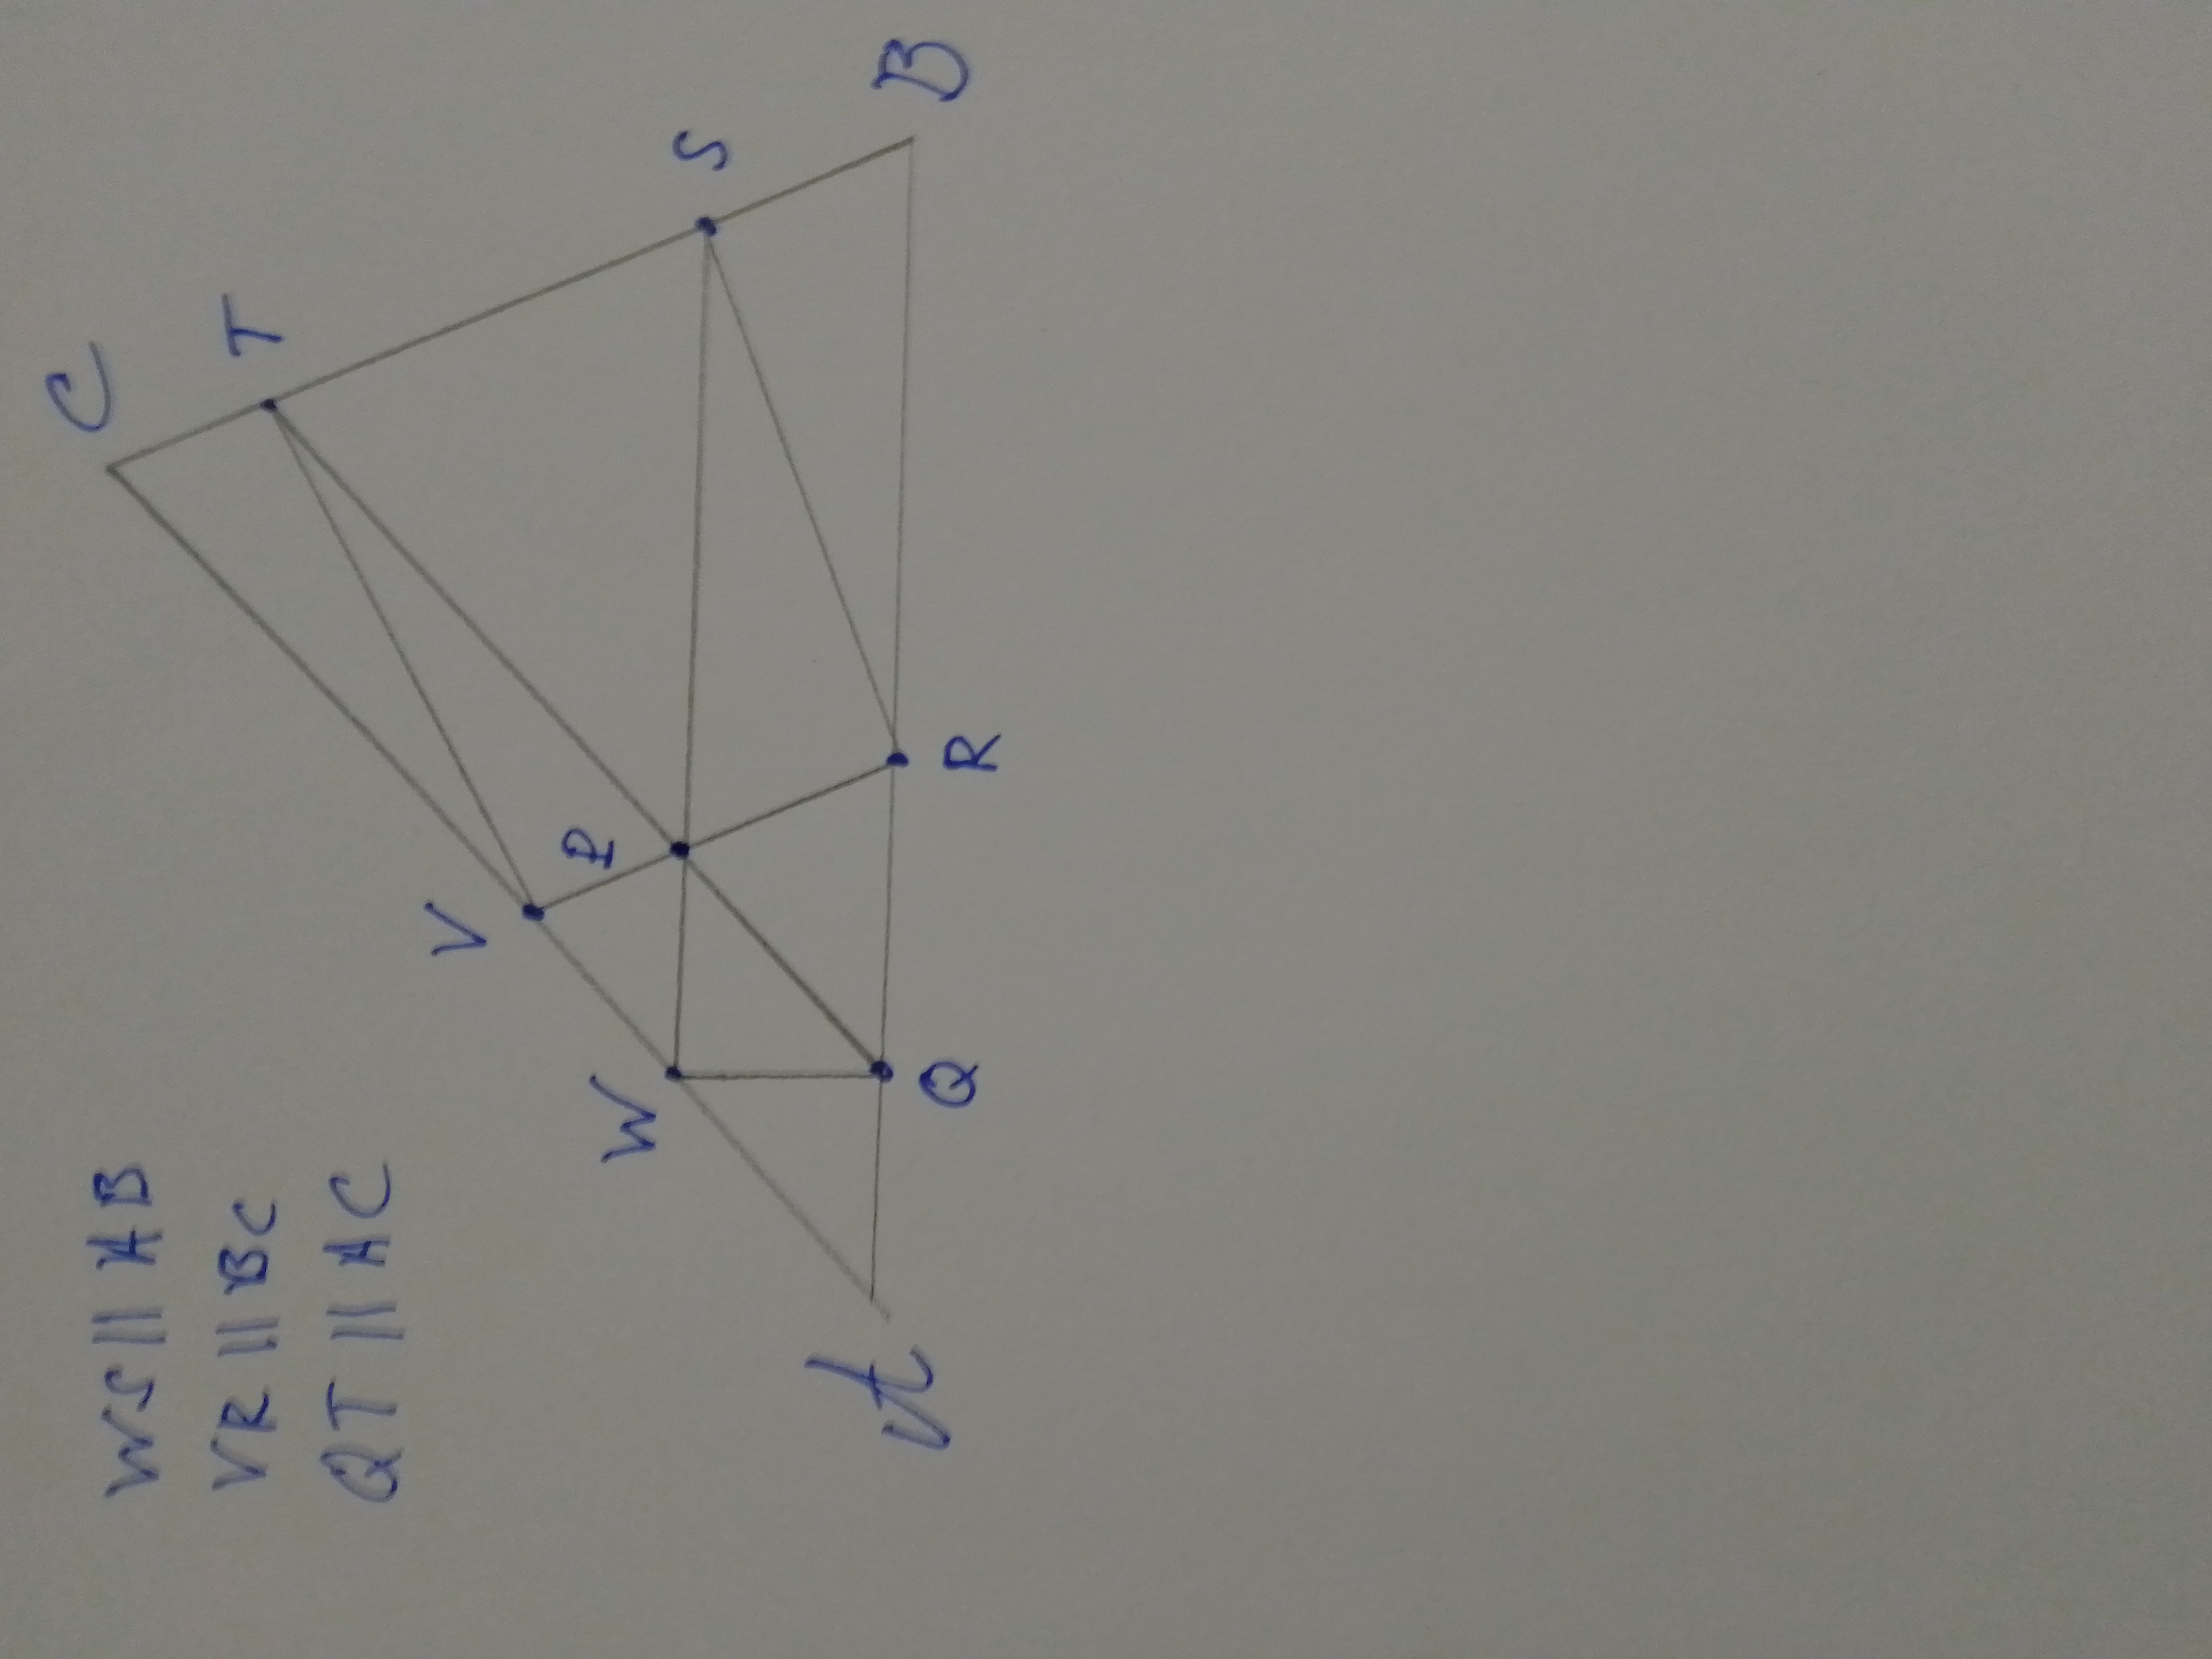 WS || AB
VR || BC
QT || AC
C
T
V
P
W
S
A
B
Q
R